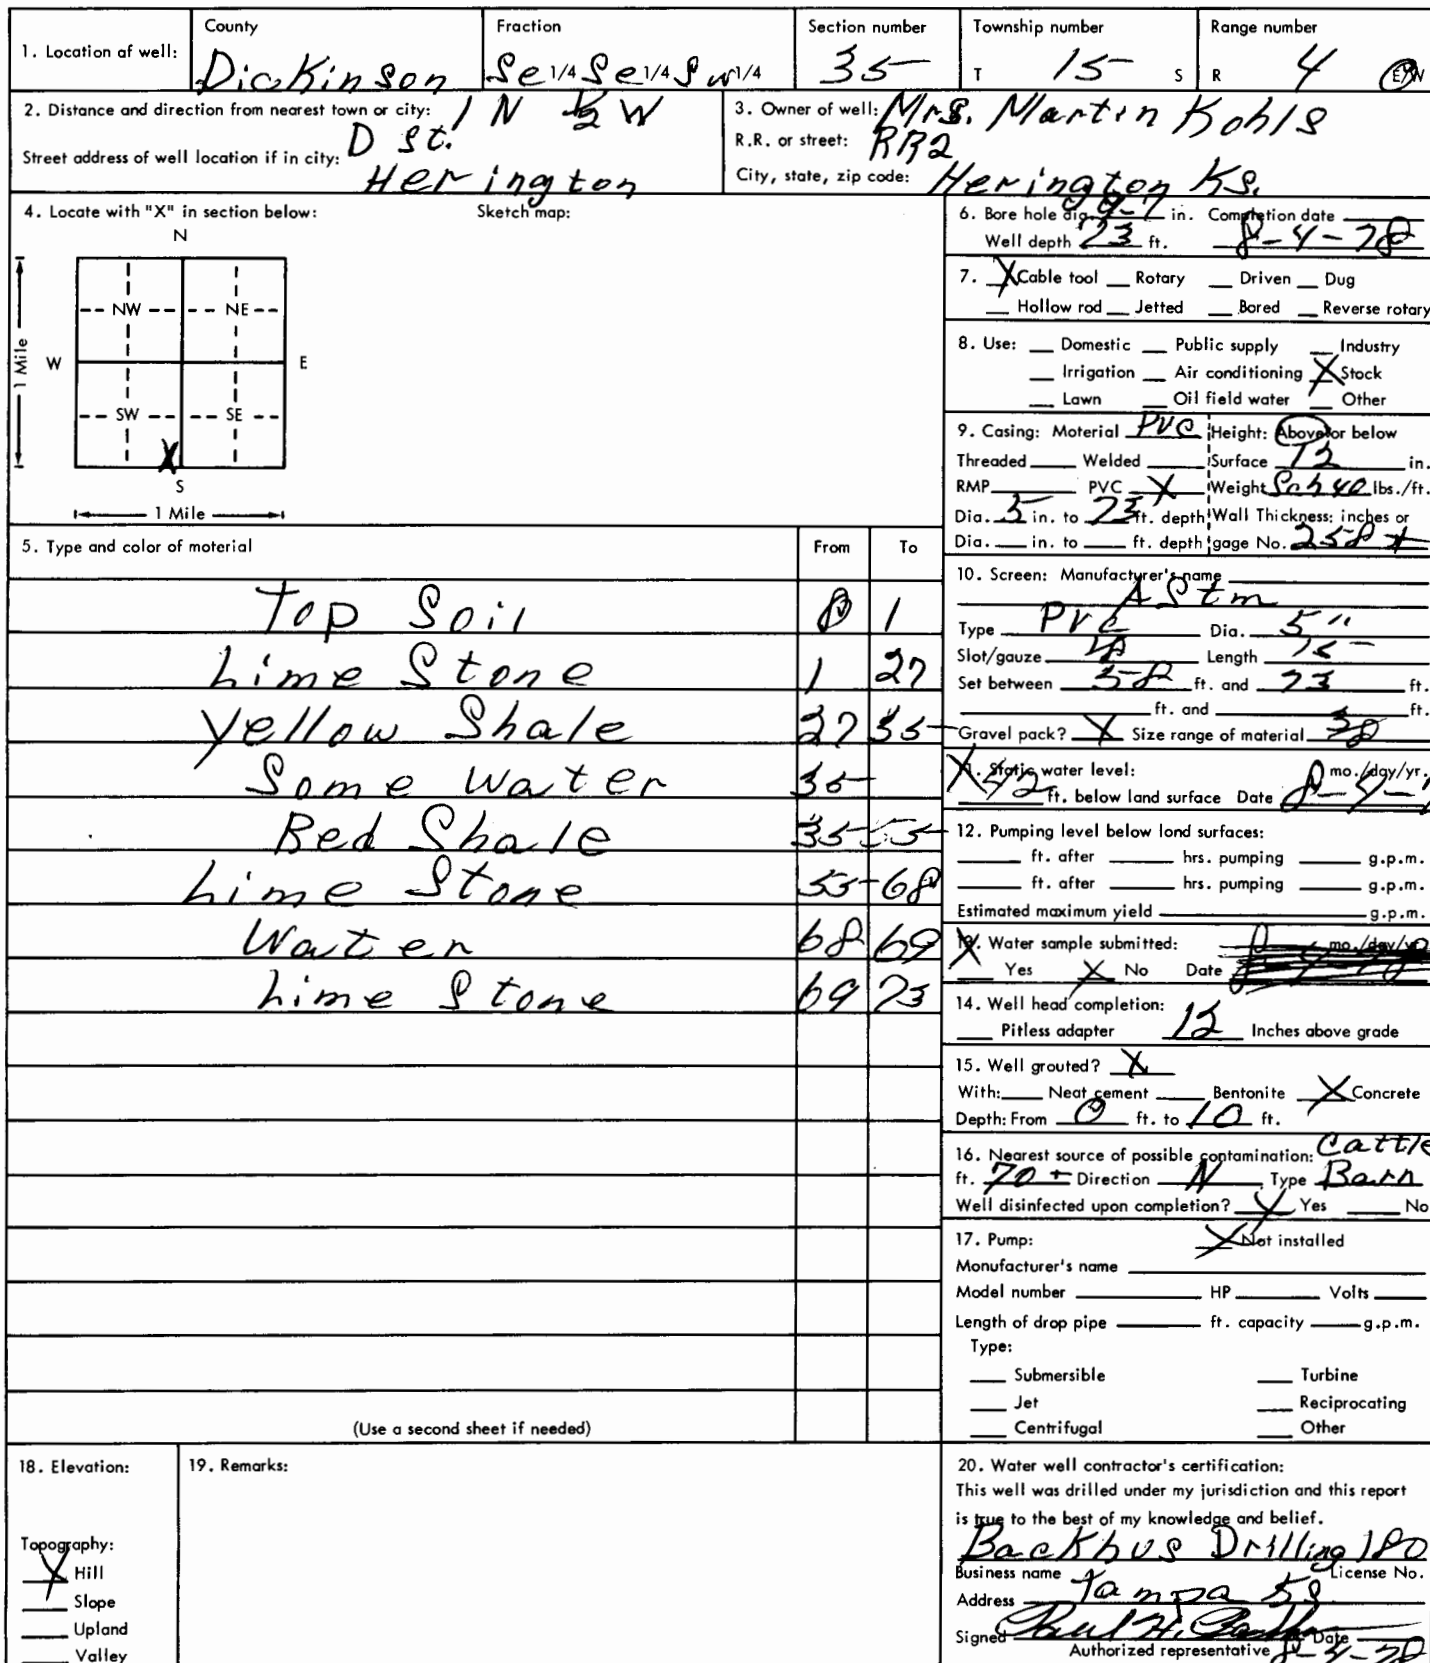 County Fraction Section number Township number Range number
1. Location of well: Dickinson Se 1/4 Se 1/4 Sw 1/4 35 T 15 S R 4 E/W
2. Distance and direction from nearest town or city: 1 N 1/2 W
D St.
Street address of well location if in city:
Herington
3. Owner of well: Mrs. Martin Kohls
R.R. or street: RR2
City, state, zip code: Herington Ks.
4. Locate with "X" in section below: Sketch map:
N
NW NE
W E
1 Mile
SW SE
X
S
1 Mile
5. Type and color of material From To
Top Soil 0 1
Lime Stone 1 27
Yellow Shale 27 35
Some Water 35
Red Shale 35 55
Lime Stone 55 68
Water 68 69
Lime Stone 69 73
(Use a second sheet if needed)
6. Bore hole dia. in. Completion date
Well depth 73 ft. 8-4-78
7. X Cable tool Rotary Driven Dug
Hollow rod Jetted Bored Reverse rotary
8. Use: Domestic Public supply Industry
Irrigation Air conditioning X Stock
Lawn Oil field water Other
9. Casing: Material PVC Height: Above or below
Threaded Welded Surface 12 in.
RMP PVC X Weight Sch 40 lbs./ft.
Dia. 5 in. to 73 ft. depth Wall Thickness: inches or
Dia. in. to ft. depth gage No. 258
10. Screen: Manufacturer's name
AStm
Type PVC Dia. 5"
Slot/gauze Length 15
Set between 58 ft. and 73 ft.
ft. and ft.
Gravel pack? X Size range of material
11. Static water level: mo./day/yr.
42 ft. below land surface Date 8-4-7
12. Pumping level below land surfaces:
ft. after hrs. pumping g.p.m.
ft. after hrs. pumping g.p.m.
Estimated maximum yield g.p.m.
13. Water sample submitted: mo./day/yr.
Yes X No Date
14. Well head completion:
Pitless adapter 12 Inches above grade
15. Well grouted? X
With: Neat cement Bentonite X Concrete
Depth: From 0 ft. to 10 ft.
16. Nearest source of possible contamination: Cattle
ft. 70 + Direction N Type Barn
Well disinfected upon completion? X Yes No
17. Pump: X Not installed
Manufacturer's name
Model number HP Volts
Length of drop pipe ft. capacity g.p.m.
Type:
Submersible Turbine
Jet Reciprocating
Centrifugal Other
18. Elevation:
Topography:
X Hill
Slope
Upland
Valley
19. Remarks:
20. Water well contractor's certification:
This well was drilled under my jurisdiction and this report
is true to the best of my knowledge and belief.
Backhus Drilling 180
Business name License No.
Address Tampa Ks
Signed Paul H. Date
Authorized representative 8-4-78